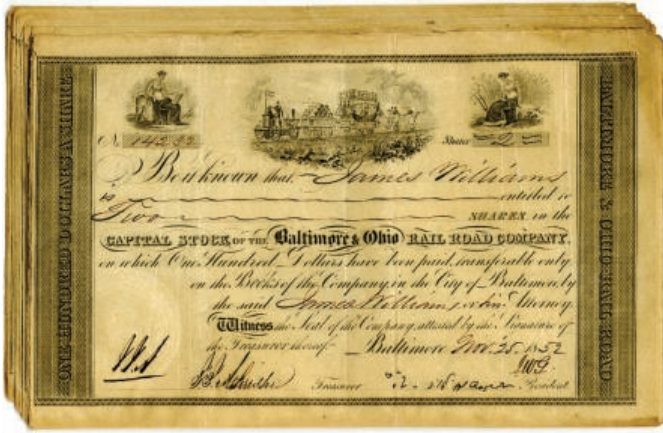 ONE HUNDRED DOLLARS A SHARE
BALTIMORE & OHIO RAIL ROAD
No
Shares 2
Be it known that James Williams
is entitled to
Two SHARES in the
CAPITAL STOCK OF THE Baltimore & Ohio RAIL ROAD COMPANY,
on which One Hundred Dollars have been paid, transferable only
on the Books of the Company, in the City of Baltimore, by
the said James Williams or his Attorney
Witness the Seal of the Company, attested by the Signature of
the Treasurer thereof Baltimore Nov. 25. 1852
Treasurer President